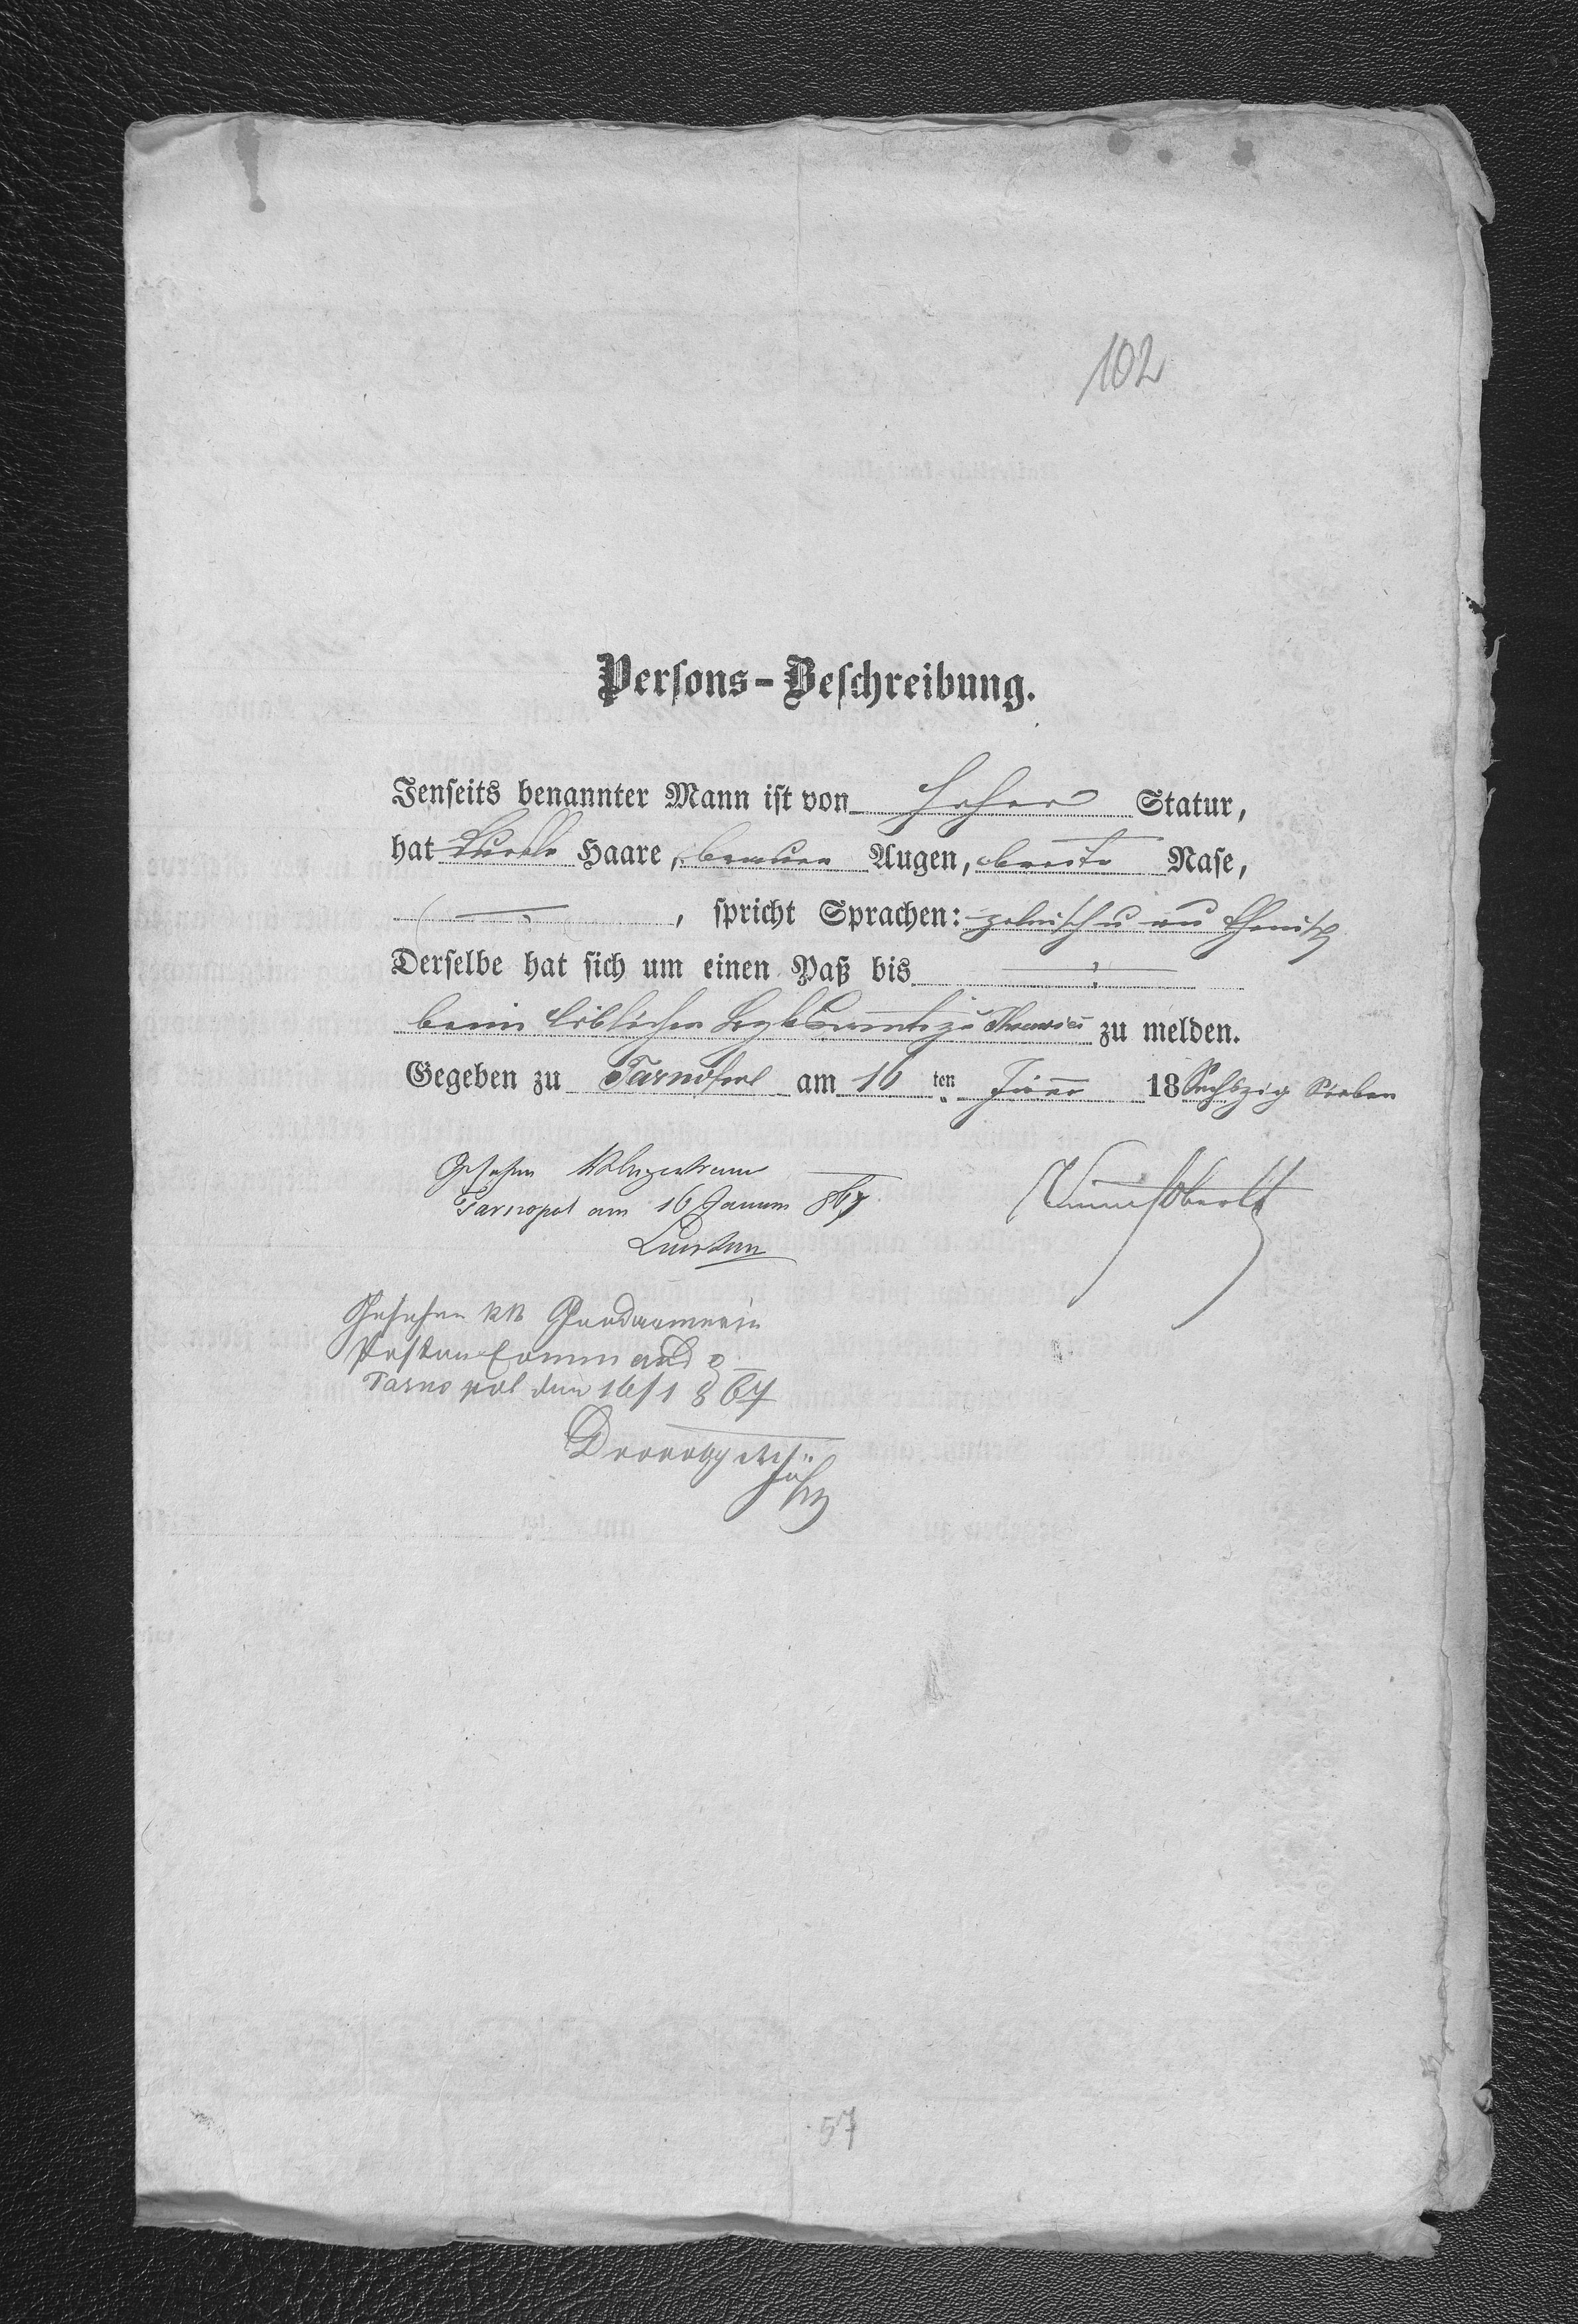 102
Persons-Beschreibung.
Jenseits benannter Mann ist von hoher Statur,
hat Haare, braune Augen, breite Nase,
, spricht Sprachen: polnisch u
Derselbe hat sich um einen Paß bis
beim löblichen zu zu melden.
Gegeben zu Tarnopol am 16 ten Jäner 18 Sechszig Sieben
Gesehen
Tarnopol am 16 Januar 867
Gesehen kk Gendarmerie
Posten Commando
Tarnopol den 16/1 867
57